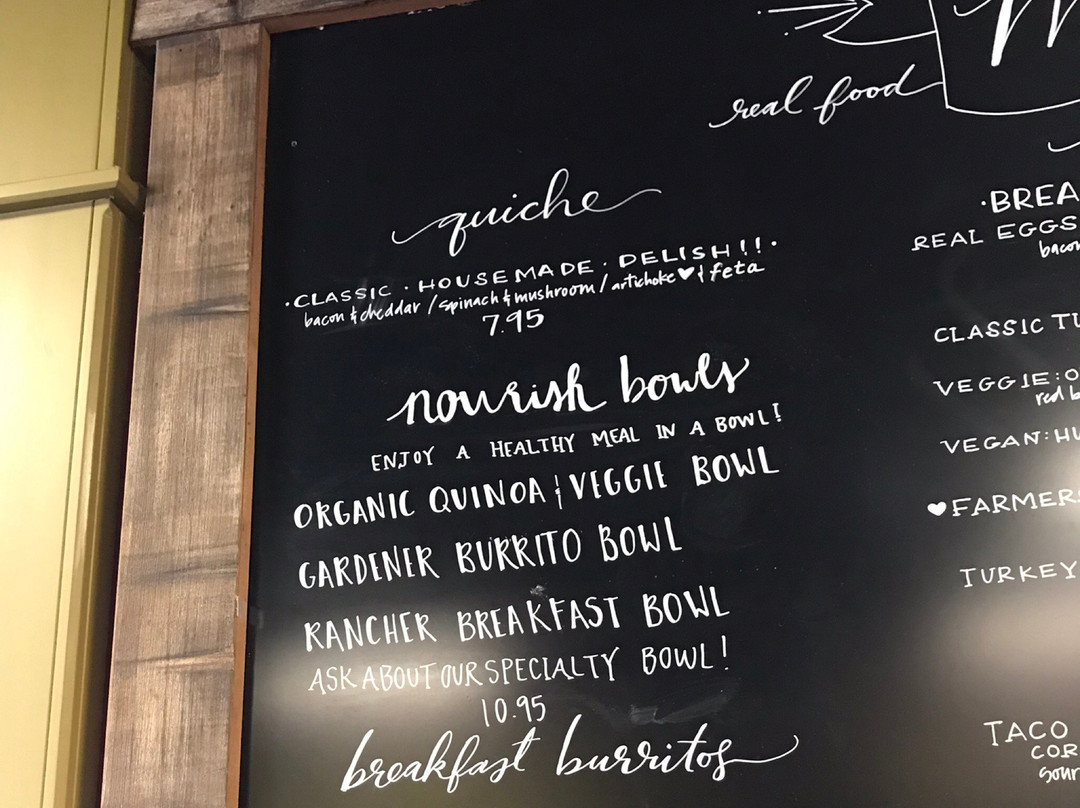 real food
quiche
·CLASSIC·HOUSEMADE·DELISH!!·
bacon & cheddar / spinach & mushroom / artichoke ♥ & feta
7.95
nourish bowls
ENJOY A HEALTHY MEAL IN A BOWL!
ORGANIC QUINOA & VEGGIE BOWL
GARDENER BURRITO BOWL
RANCHER BREAKFAST BOWL
ASK ABOUT OUR SPECIALTY BOWL!
10.95
breakfast burritos
·BREA
REAL EGGS
bacon
CLASSIC TU
VEGGIE:O
red b
VEGAN:HU
♥FARMERS
TURKEY
TACO
COR
sour